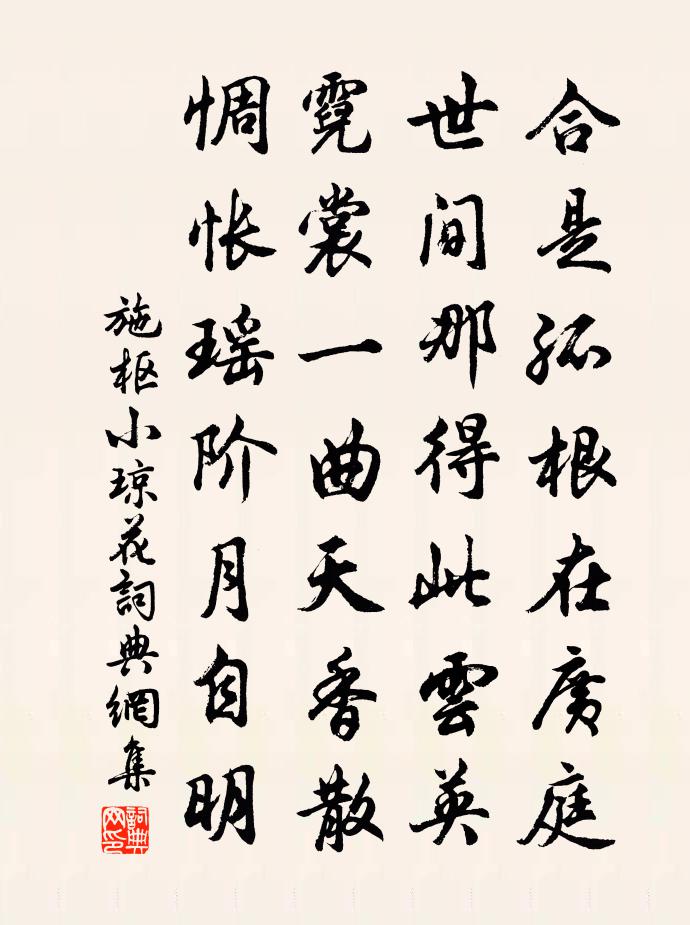 合是孤根在广庭
世间那得此雲英
霓裳一曲天香散
惆怅瑶阶月自明
施枢小琼花詞典網集
詞典
网印